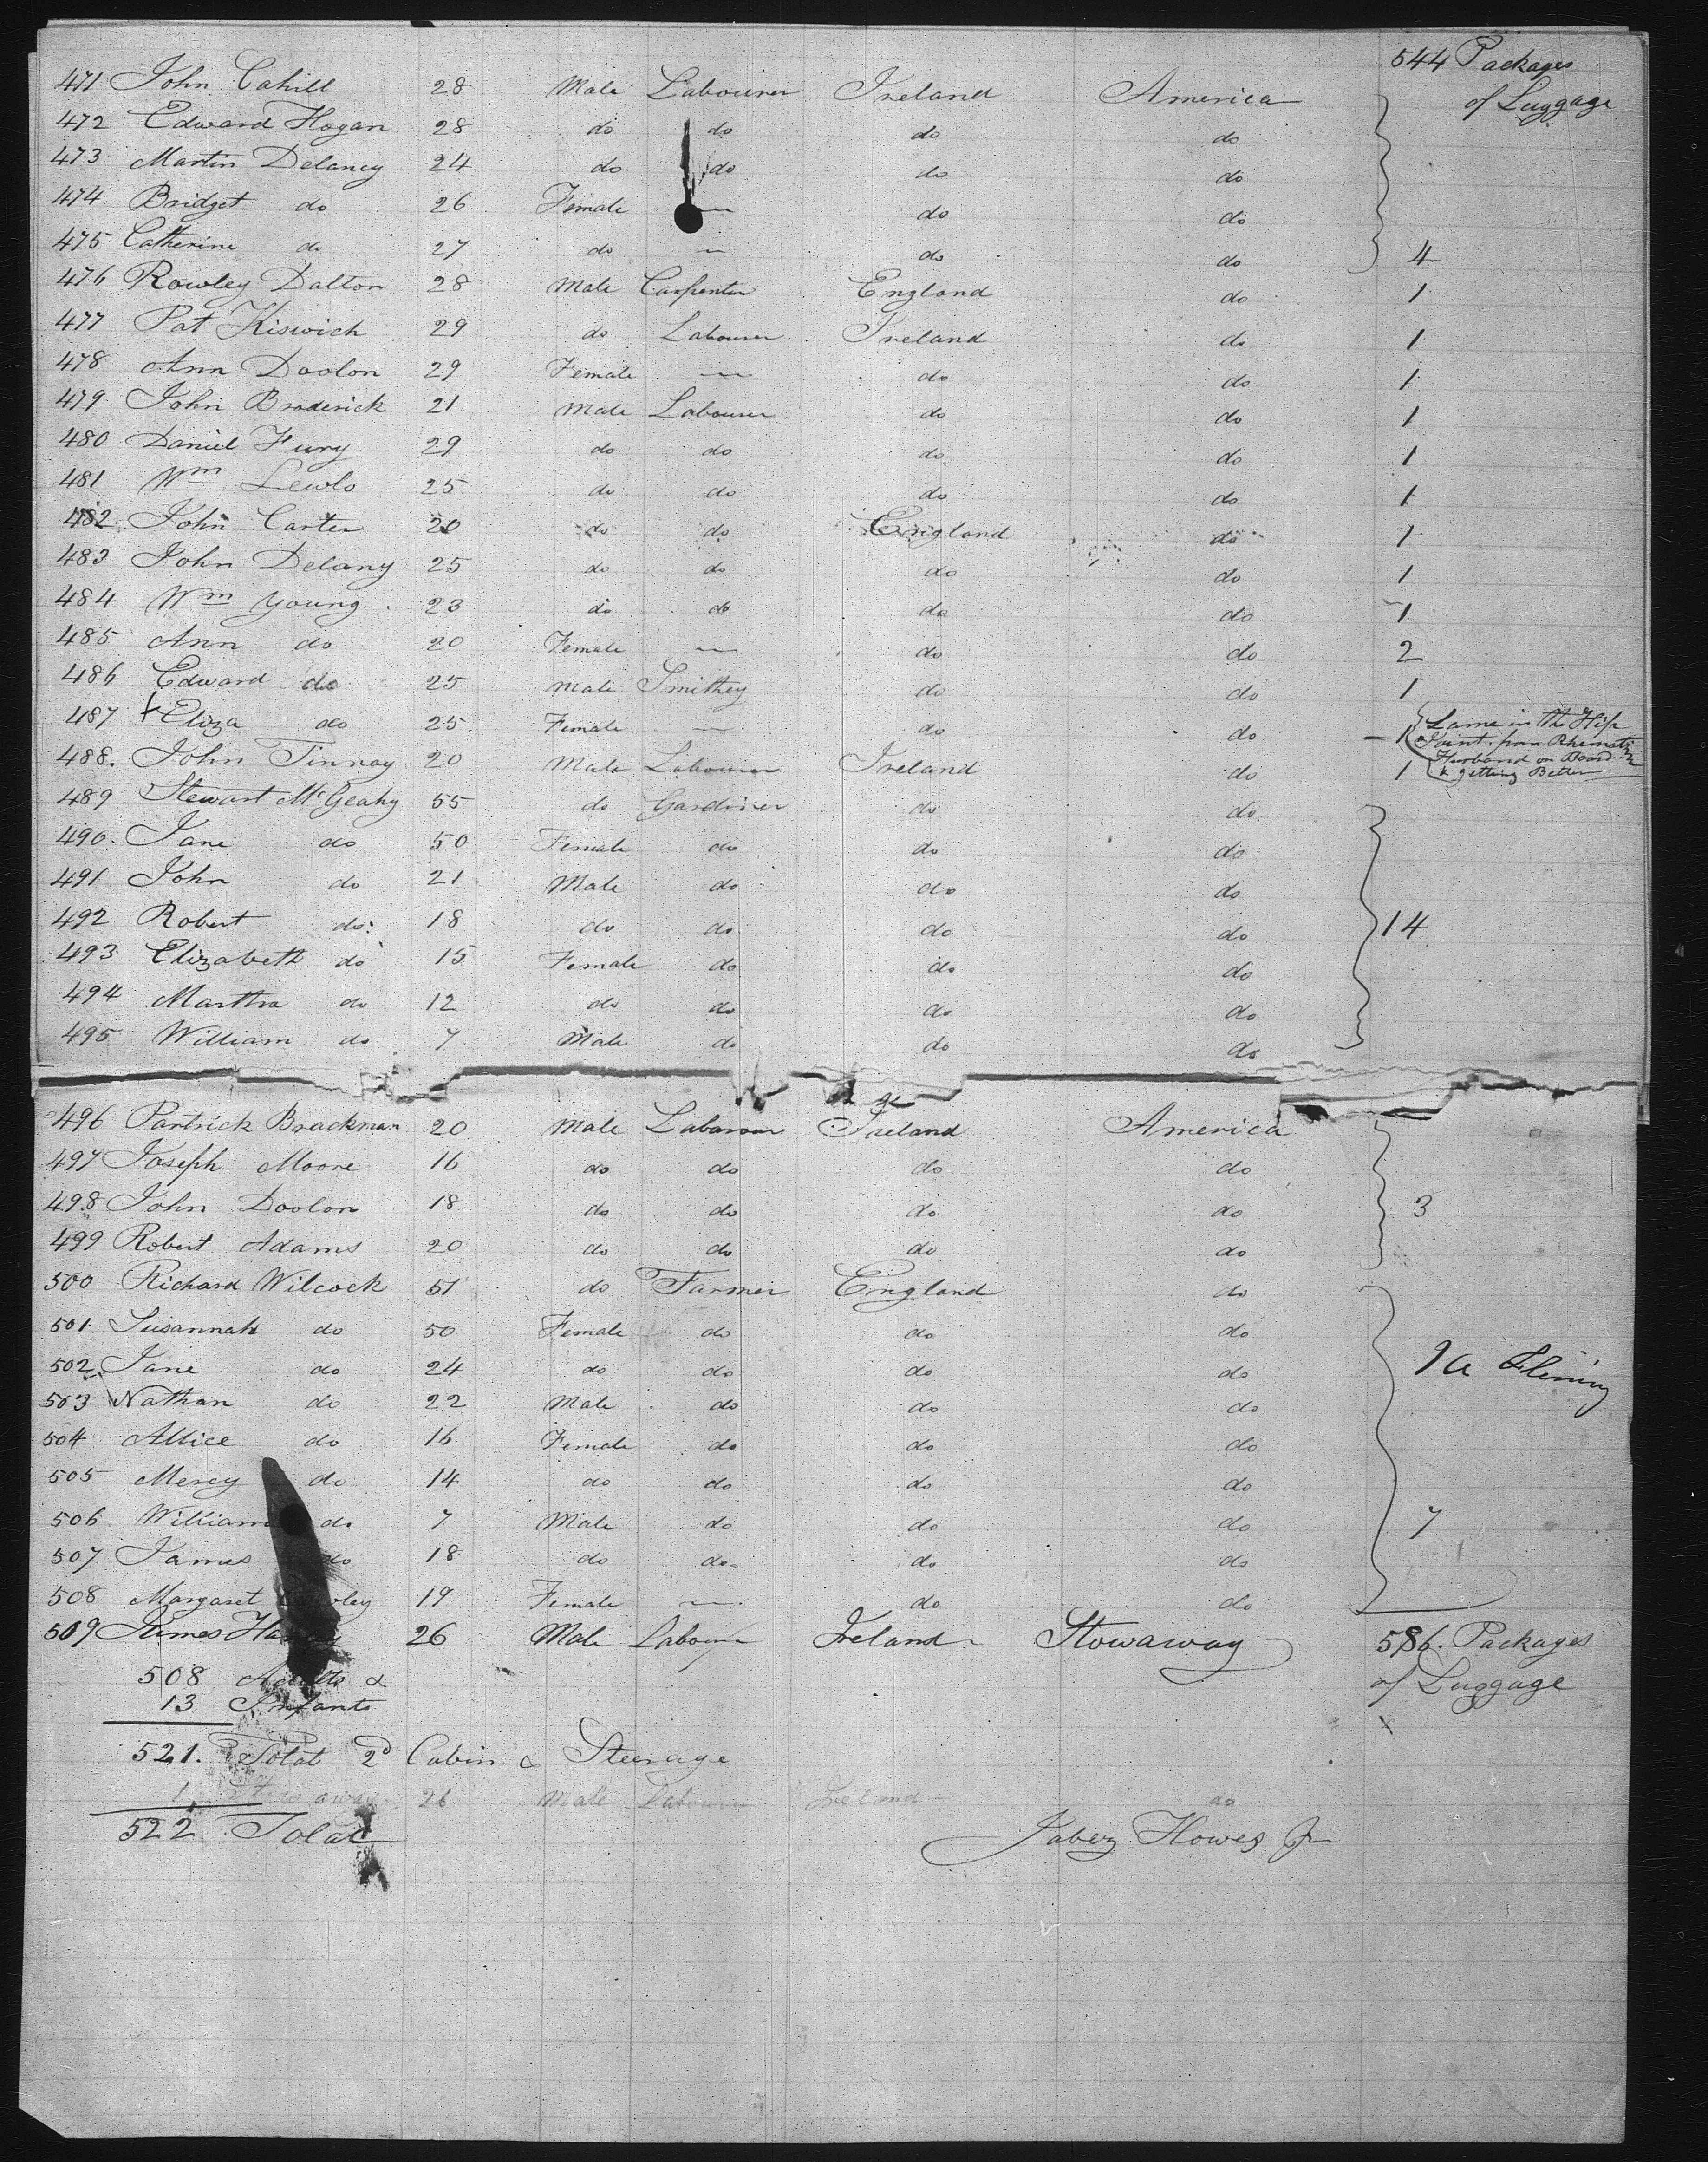 544 Packages
of Luggage
471 John Cahill 28 Male Labourer Ireland America
472 Edward Hogan 28 do do do do
473 Martin Delaney 24 do do do do
474 Bridget do 26 Female — do do
475 Catherine do 27 do — do do 4
476 Rowley Dalton 28 Male Carpenter England do 1
477 Pat Kiswich 29 do Labourer Ireland do 1
478 Ann Doolon 29 Female — do do 1
479 John Broderick 21 Male Labourer do do 1
480 Daniel Fury 29 do do do do 1
481 Wm Lewls 25 do do do do 1
482 John Carter 20 do do England do 1
483 John Delany 25 do do do do 1
484 Wm Young 23 do do do do 1
485 Ann do 20 Female — do do 2
486 Edward do 25 Male Smithey do do 1
487 Eliza do 25 Female — do do 1 Lame in the Hip
Joint from Rhematism
Husband on Board
& getting Better
488. John Tinnay 20 Male Labourer Ireland do 1
489 Stewart McGeahy 55 do Gardiner do do
490. Jane do 50 Female do do do
491 John do 21 Male do do do
492 Robert do: 18 do do do do 14
493 Elizabeth do 15 Female do do do
494 Martha do 12 do do do do
495 William do 7 Male do do do
496 Partrick Brackman 20 Male Labarour Ireland America
497 Joseph Moore 16 do do do do
498 John Doolon 18 do do do do 3
499 Robert Adams 20 do do do do
500 Richard Wilcock 51 do Farmer England do
501 Susannah do 50 Female do do do
502 Jane do 24 do do do do
503 Nathan do 22 Male do do do
504 Allice do 16 Female do do do
505 Mercy do 14 do do do do
506 William do 7 Male do do do 7
507 James do 18 do do do do
508 Margaret 19 Female — do do
509 James 26 Male Labour Ireland Stowaway 586. Packages
of Luggage
508 Adults &
13 Infants
521. Total 2d Cabin & Steerage
1 Stowaway 26 Male Labourer Ireland do
522 Total
Jabez Howes Jr